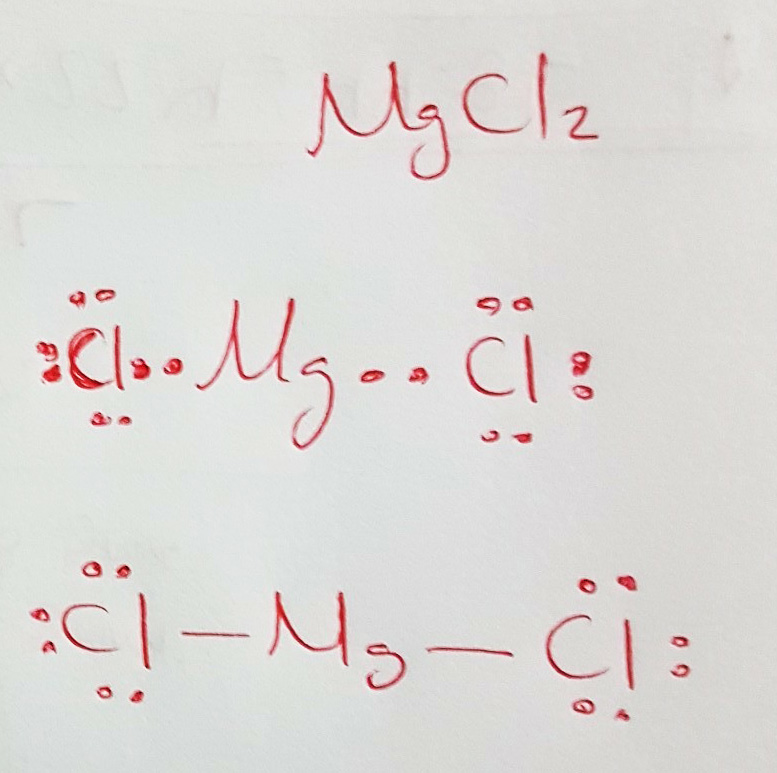 MgCl2
:Cl··Mg··Cl:
:Cl—Mg—Cl: